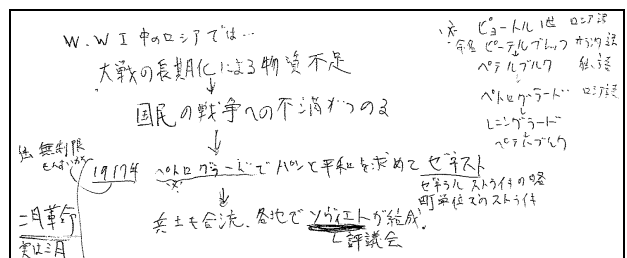 W.W I 中のロシアでは…
大戦の長期化による物資不足
↓
国民の戦争への不満がつのる
↓
1917年 ペトログラードでパンと平和を求めてゼネスト
※
ゼネラルストライキの略
町単位でのストライキ
↓
兵士も合流、各地でソヴィエトが結成。
評議会
無制限
二月革命
実は三月
※ ピョートル1世 ロシア語
命名 ピーテルブルッフ オランダ語
ペテルブルク
↓
ペトログラード ロシア語
↓
レニングラード
↓
ペテルブルク